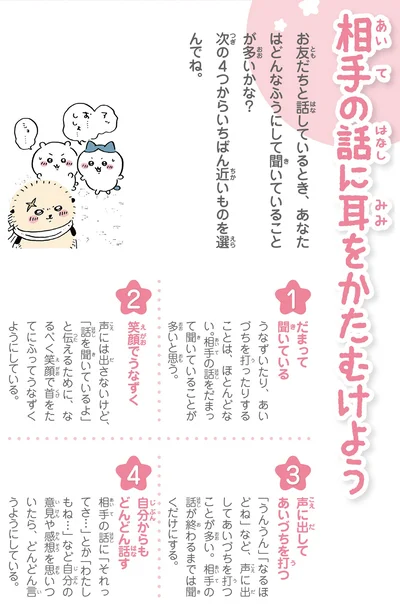 相手の話に耳をかたむけよう
お友だちと話しているとき、あなた
はどんなふうにして聞いていること
が多いかな？
次の4つからいちばん近いものを選
んでね。
1
だまって
聞いている
うなずいたり、あい
づちを打ったりする
ことは、ほとんどな
い。相手の話をだまっ
て聞いていることが
多いと思う。
2
笑顔でうなずく
声には出さないけど、
「話を聞いているよ」
と伝えるために、な
るべく笑顔で首をた
てにふってうなずく
ようにしている。
3
声に出して
あいづちを打つ
「うんうん」「なるほ
どね」など、声に出
してあいづちを打つ
ことが多い。相手の
話が終わるまでは聞
くだけにする。
4
自分からも
どんどん話す
相手の話に「それっ
てさ…」とか「わたし
もね…」など自分の
意見や感想を思いつ
いたら、どんどん言
うようにしている。